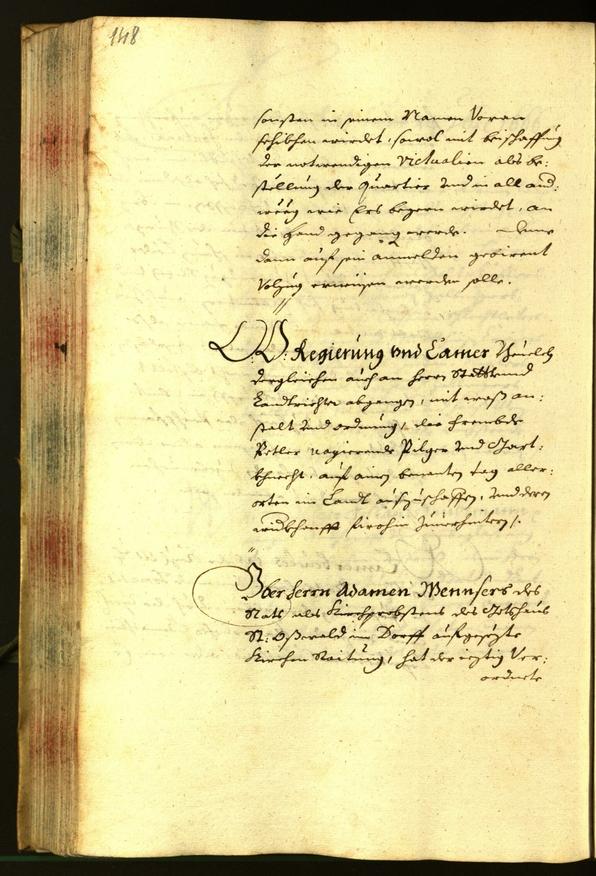 148
sonsten in seinem Namen Voran
schikhen wirdet, sowol mit beischaffung
der notwendigen Victualien als be:
stellung der Quartier Vnd in all and:
weeg wie Ers begern wirdet, an
die hand gegangen werde.
dann auf sein anmelden gebirent
Volzug erweisen werden solle.
O: Ö: Regierung vnd Camer Beuelch
dergleichen auch an herrn Statt vnd
Landtrichter abgangen, mit was an:
stalt Vnd ordnung, die frembde
Petler vagierende Pilger Vnd Gart:
khnecht, auf ainen benenten tag aller:
orten im Landt auszuschaffen, Vnd deren
widerkhonfft firohin Zuuerhietten /.
Vber herrn Adamen Mennsers des
Raths als Kirchprobstens des Gotshaus
St: Oßwald im Dorff aufgesezte
Kirchen Raitung, hat der iezig Ver:
ordnete